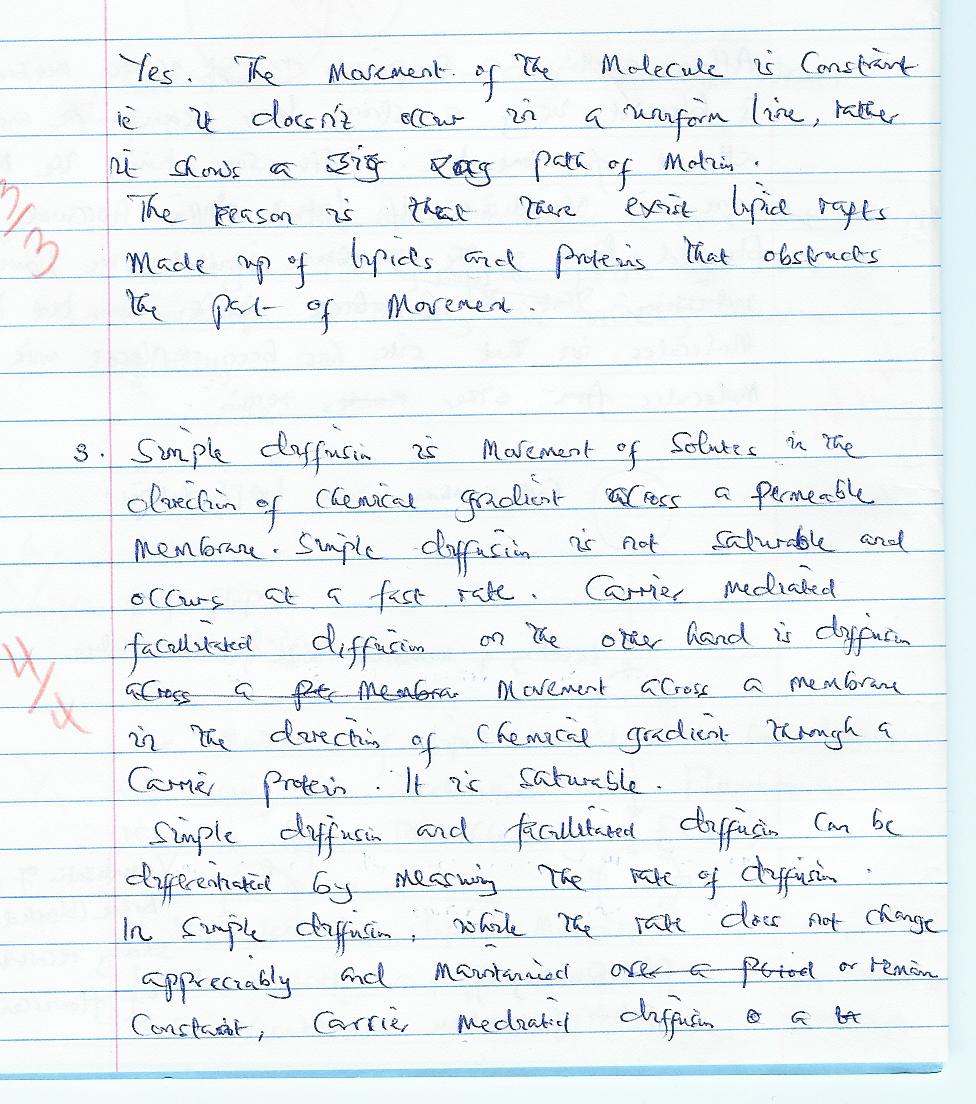 Yes. The Movement of the Molecule is Constraint
ie it doesn't occur in a uniform line, rather
it shows a Zig Zag path of Motion.
3/3
The reason is that there exist lipid rafts
Made up of lipids and proteins that obstructs
the part of Movement.
3. Simple diffusion is Movement of Solutes in the
direction of Chemical gradient across a permeable
Membrane. Simple diffusion is not saturable and
occurs at a fast rate. Carrier mediated
4/4
facilitated diffusion on the other hand is diffusion
across a per Membrane Movement across a membrane
in the direction of Chemical gradient through a
Carrier protein. It is saturable.
Simple diffusion and facilitated diffusion can be
differentiated by measuring the rate of diffusion.
In simple diffusion, while the rate does not change
appreciably and Maintained over a period or remain
Constant, Carrier Mediated diffusion a